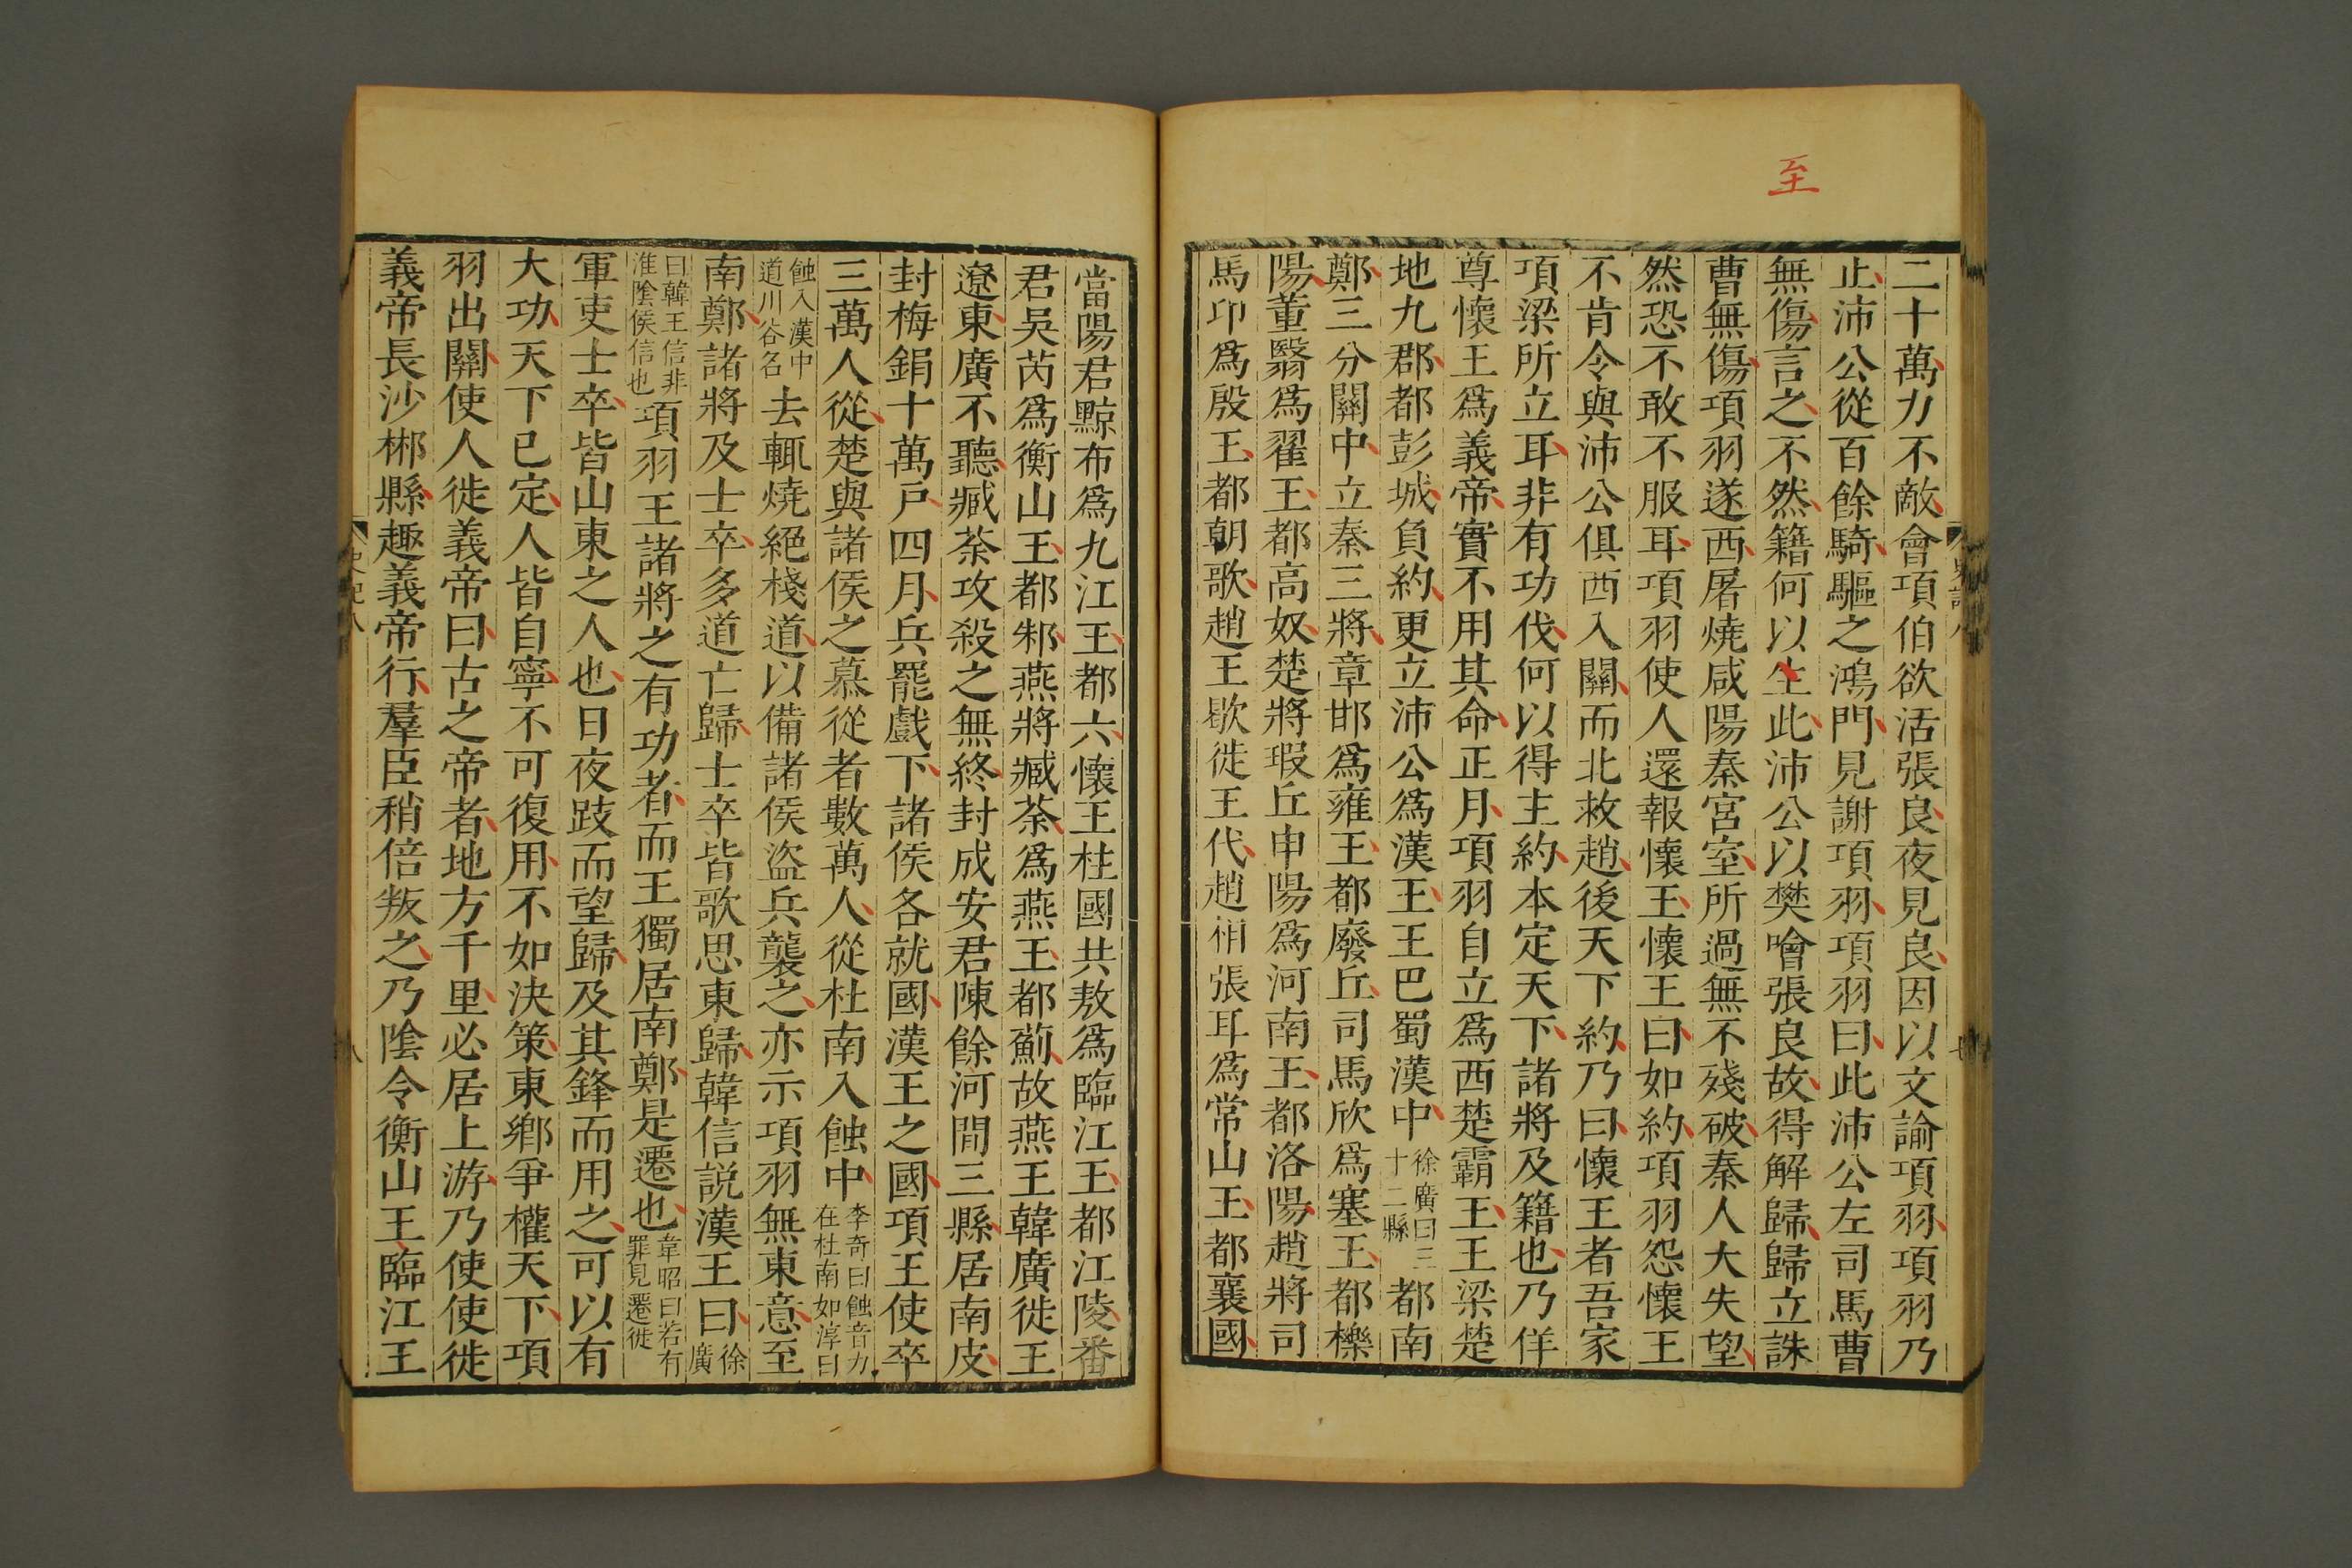 至
二十萬力不敵會項伯欲活張良夜見良因以文諭項羽項羽乃
止沛公從百餘騎驅之鴻門見謝項羽項羽曰此沛公左司馬曹
無傷言之不然籍何以生此沛公以樊噲張良故得解歸歸立誅
曹無傷項羽遂西屠燒咸陽秦宮室所過無不殘破秦人大失望
然恐不敢不服耳項羽使人還報懷王懷王曰如約項羽怨懷王
不肯令與沛公俱西入關而北救趙後天下約乃曰懷王者吾家
項梁所立耳非有功伐何以得主約本定天下諸將及籍也乃佯
尊懷王爲義帝實不用其命正月項羽自立爲西楚霸王王梁楚
地九郡都彭城負約更立沛公爲漢王王巴蜀漢中徐廣曰三十二縣都南
鄭三分關中立秦三將章邯爲雍王都廢丘司馬欣爲塞王都櫟
陽董翳爲翟王都高奴楚將瑕丘申陽爲河南王都洛陽趙將司
馬卬爲殷王都朝歌趙王歇徙王代趙相張耳爲常山王都襄國
當陽君黥布爲九江王都六懷王柱國共敖爲臨江王都江陵番
君吳芮爲衡山王都邾燕將臧荼爲燕王都薊故燕王韓廣徙王
遼東廣不聽臧荼攻殺之無終封成安君陳餘河間三縣居南皮
封梅鋗十萬戶四月兵罷戲下諸侯各就國漢王之國項王使卒
三萬人從楚與諸侯之慕從者數萬人從杜南入蝕中李奇曰蝕音力在杜南如淳曰
蝕入漢中道川谷名去輒燒絕棧道以備諸侯盜兵襲之亦示項羽無東意至
南鄭諸將及士卒多道亡歸士卒皆歌思東歸韓信説漢王曰徐廣
曰韓王信非淮陰侯信也項羽王諸將之有功者而王獨居南鄭是遷也韋昭曰若有罪見遷徙
軍吏士卒皆山東之人也日夜跂而望歸及其鋒而用之可以有
大功天下已定人皆自寧不可復用不如決策東鄕爭權天下項
羽出關使人徙義帝曰古之帝者地方千里必居上游乃使使徙
義帝長沙郴縣趣義帝行羣臣稍倍叛之乃陰令衡山王臨江王
史記八
八